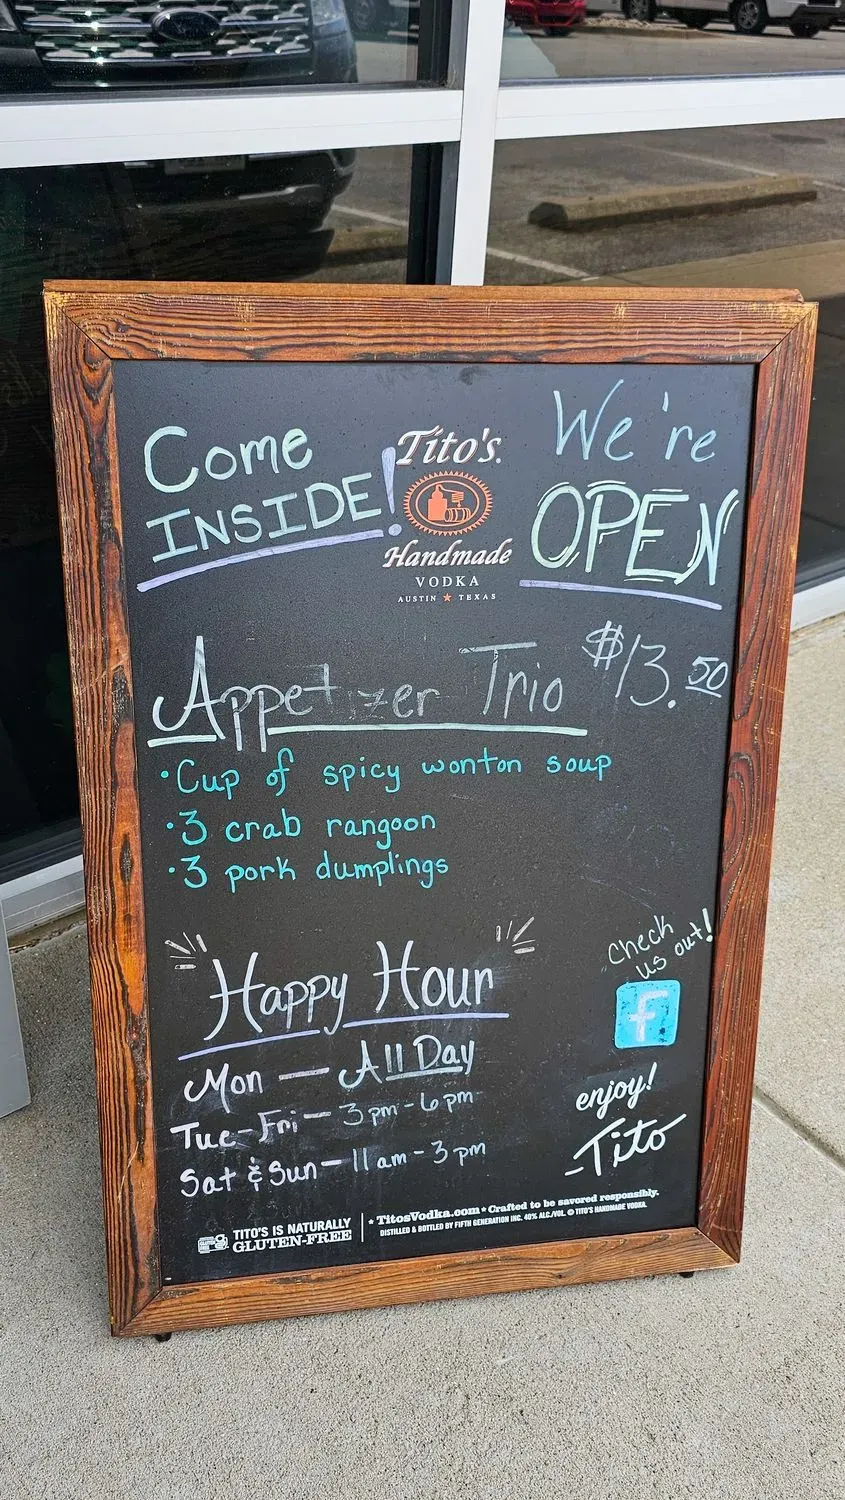 Come
INSIDE!
Tito's.
Handmade
VODKA
AUSTIN ★ TEXAS
We're
OPEN
Appetizer Trio $13.50
• Cup of spicy wonton soup
• 3 crab rangoon
• 3 pork dumplings
Happy Hour
Mon — All Day
Tue-Fri — 3pm-6pm
Sat & Sun — 11am-3pm
check
us out!
f
enjoy!
-Tito
TITO'S IS NATURALLY
GLUTEN-FREE
★ TitosVodka.com ★ Crafted to be savored responsibly.
DISTILLED & BOTTLED BY FIFTH GENERATION INC. 40% ALC./VOL. © TITO'S HANDMADE VODKA.